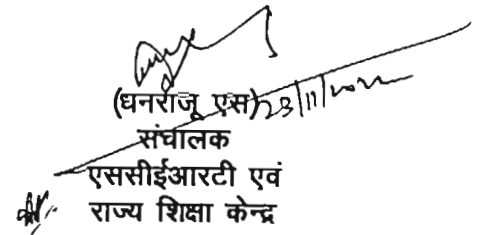 (धनराजू एस) 23/11/2022
संचालक
एससीईआरटी एवं
राज्य शिक्षा केन्द्र